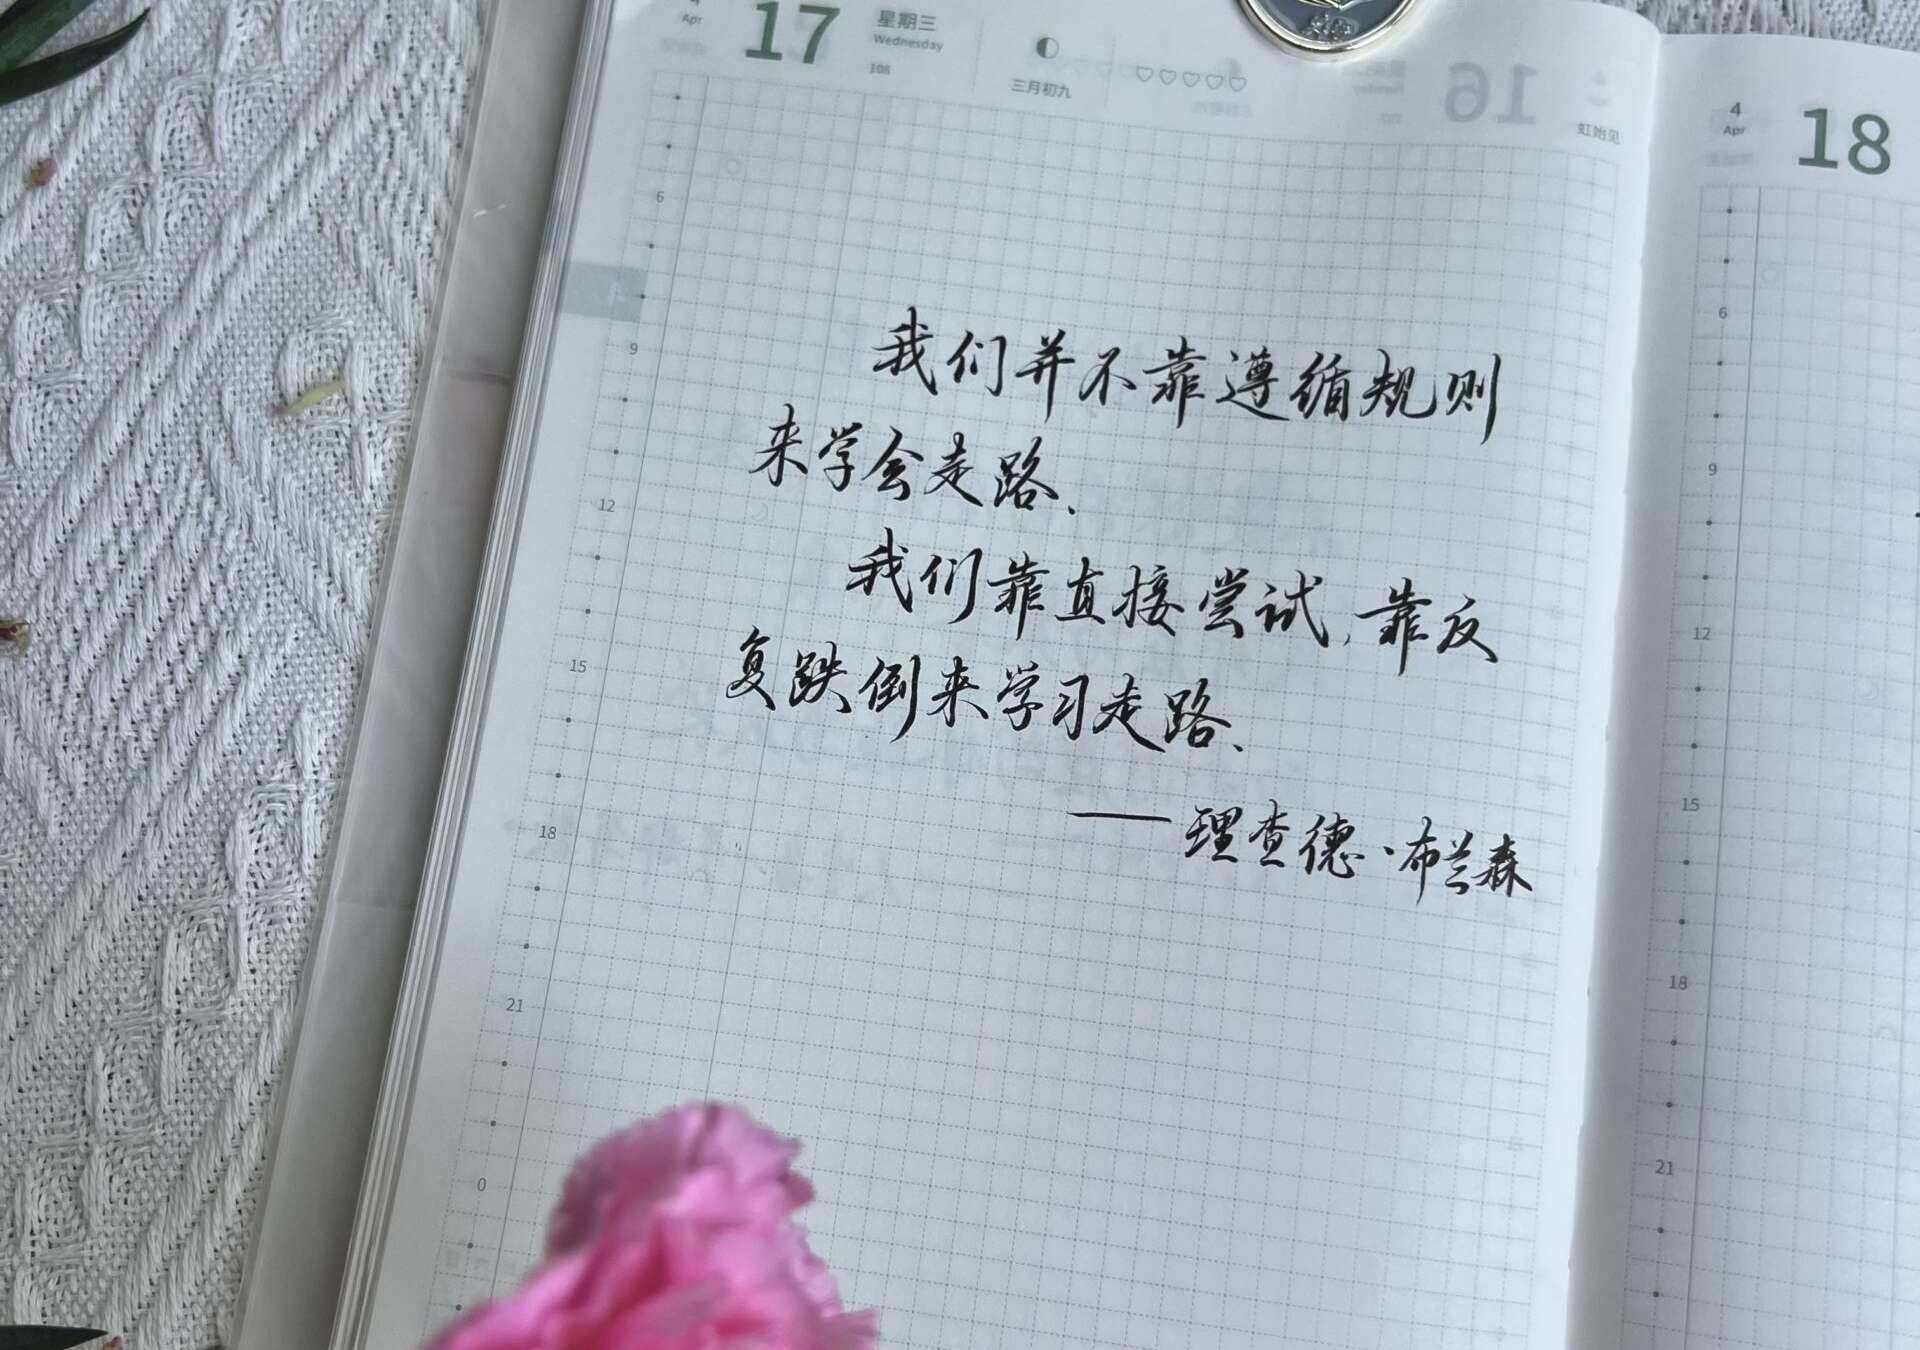 4
Apr
17
星期三
Wednesday
108
三月初九
16
虹始见
6
9
12
15
18
21
0
我们并不靠遵循规则
来学会走路、
我们靠直接尝试,靠反
复跌倒来学习走路、
——理查德·布兰森
4
Apr
18
6
9
12
15
18
21